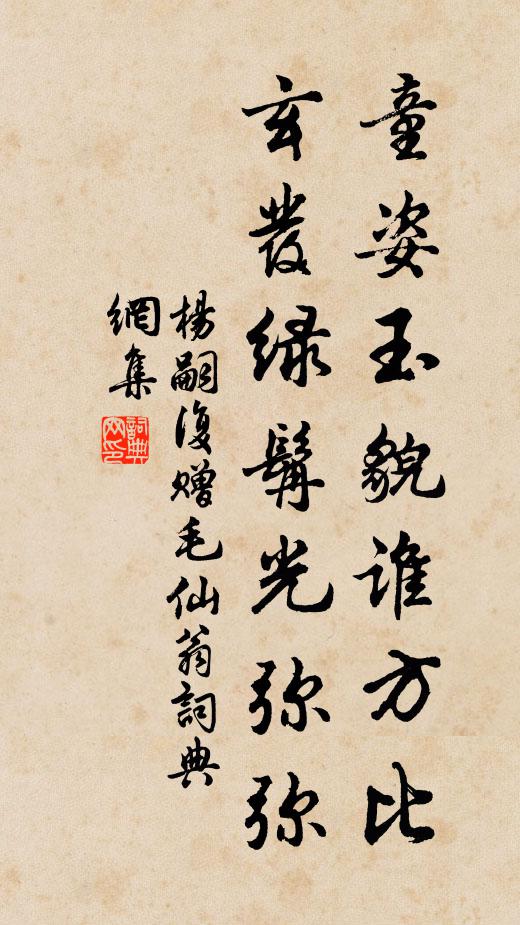 童姿玉貌谁方比
玄发绿髯光弥弥
杨嗣復赠毛仙翁詞典
網集
詞典
网印